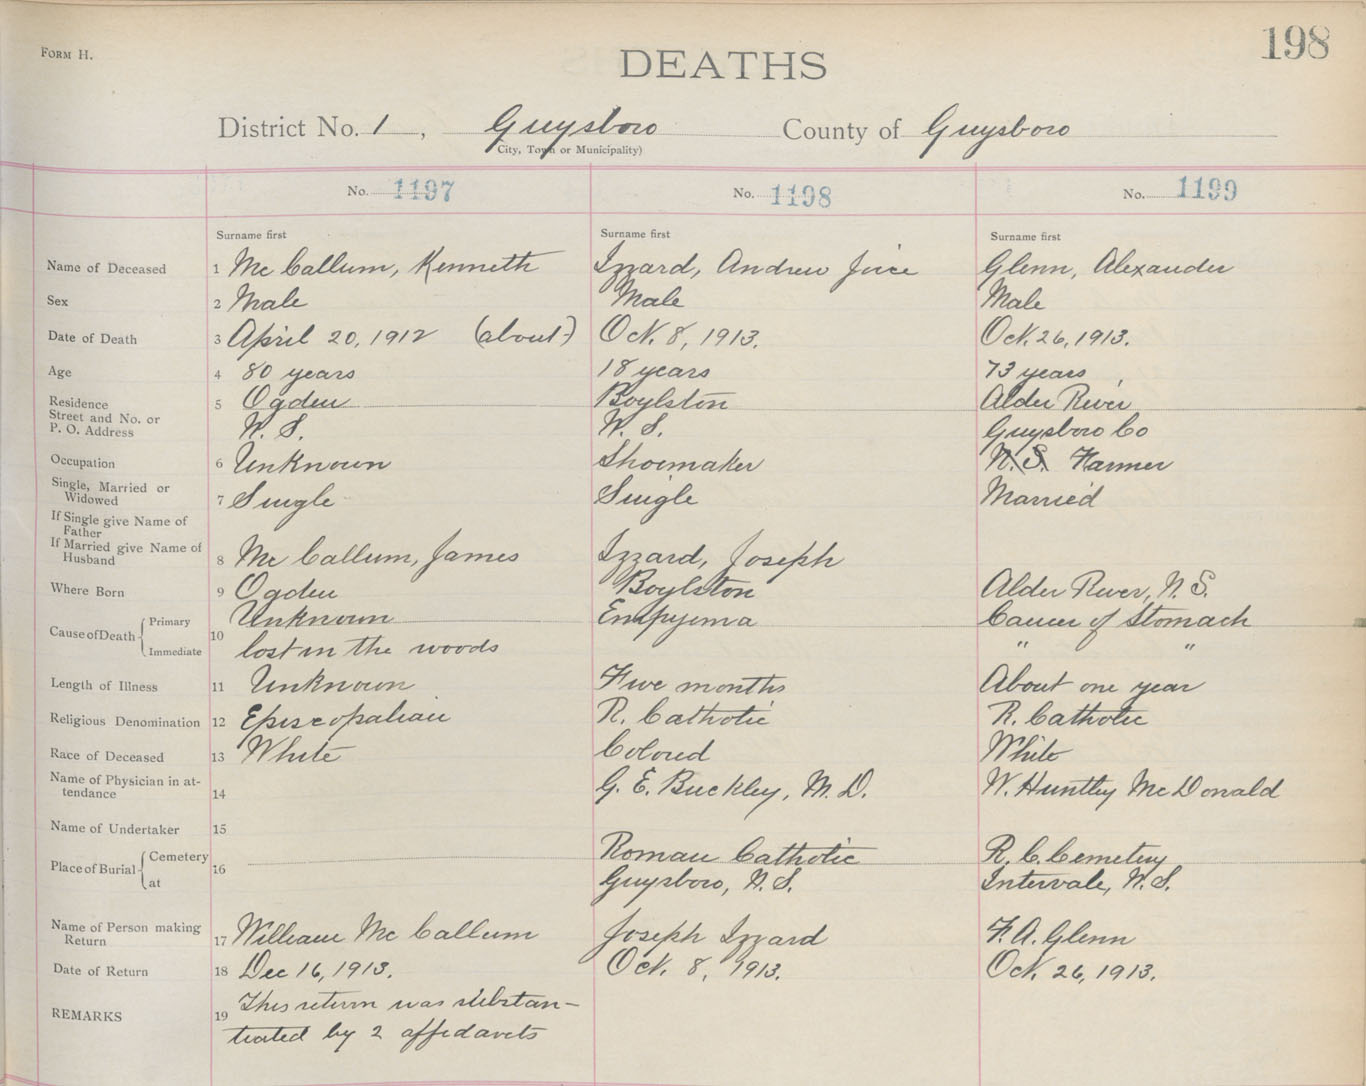 FORM H.
DEATHS
198
District No. 1, Guysboro County of Guysboro
City, Town or Municipality)
No. 1197 No. 1198 No. 1199
Surname first Surname first Surname first
Name of Deceased 1 Mc Callum, Kenneth Izzard, Andrew Joice Glenn, Alexander
Sex 2 Male Male Male
Date of Death 3 April 20, 1912 (about) Oct. 8, 1913. Oct. 26, 1913.
Age 4 80 years 18 years 73 years
Residence 5 Ogden Boylston Alder River
Street and No. or
P. O. Address N. S. N. S. Guysboro Co
Occupation 6 Unknown Shoemaker N. S. Farmer
Single, Married or
Widowed 7 Single Single Married
If Single give Name of
Father
If Married give Name of
Husband 8 Mc Callum, James Izzard, Joseph
Where Born 9 Ogden Boylston Alder River, N. S.
Cause of Death Primary 10 Unknown Empyema Cancer of Stomach
Immediate lost in the woods " "
Length of Illness 11 Unknown Five months About one year
Religious Denomination 12 Episcopalian R. Catholic R. Catholic
Race of Deceased 13 White Colored White
Name of Physician in at-
tendance 14 G. E. Buckley, M. D. W. Huntley McDonald
Name of Undertaker 15
Place of Burial Cemetery 16 Roman Catholic R. C. Cemetery
at Guysboro, N. S. Intervale, N. S.
Name of Person making
Return 17 William Mc Callum Joseph Izzard F. A. Glenn
Date of Return 18 Dec 16, 1913. Oct. 8, 1913. Oct. 26, 1913.
REMARKS 19 This return was substan-
tiated by 2 affedavits